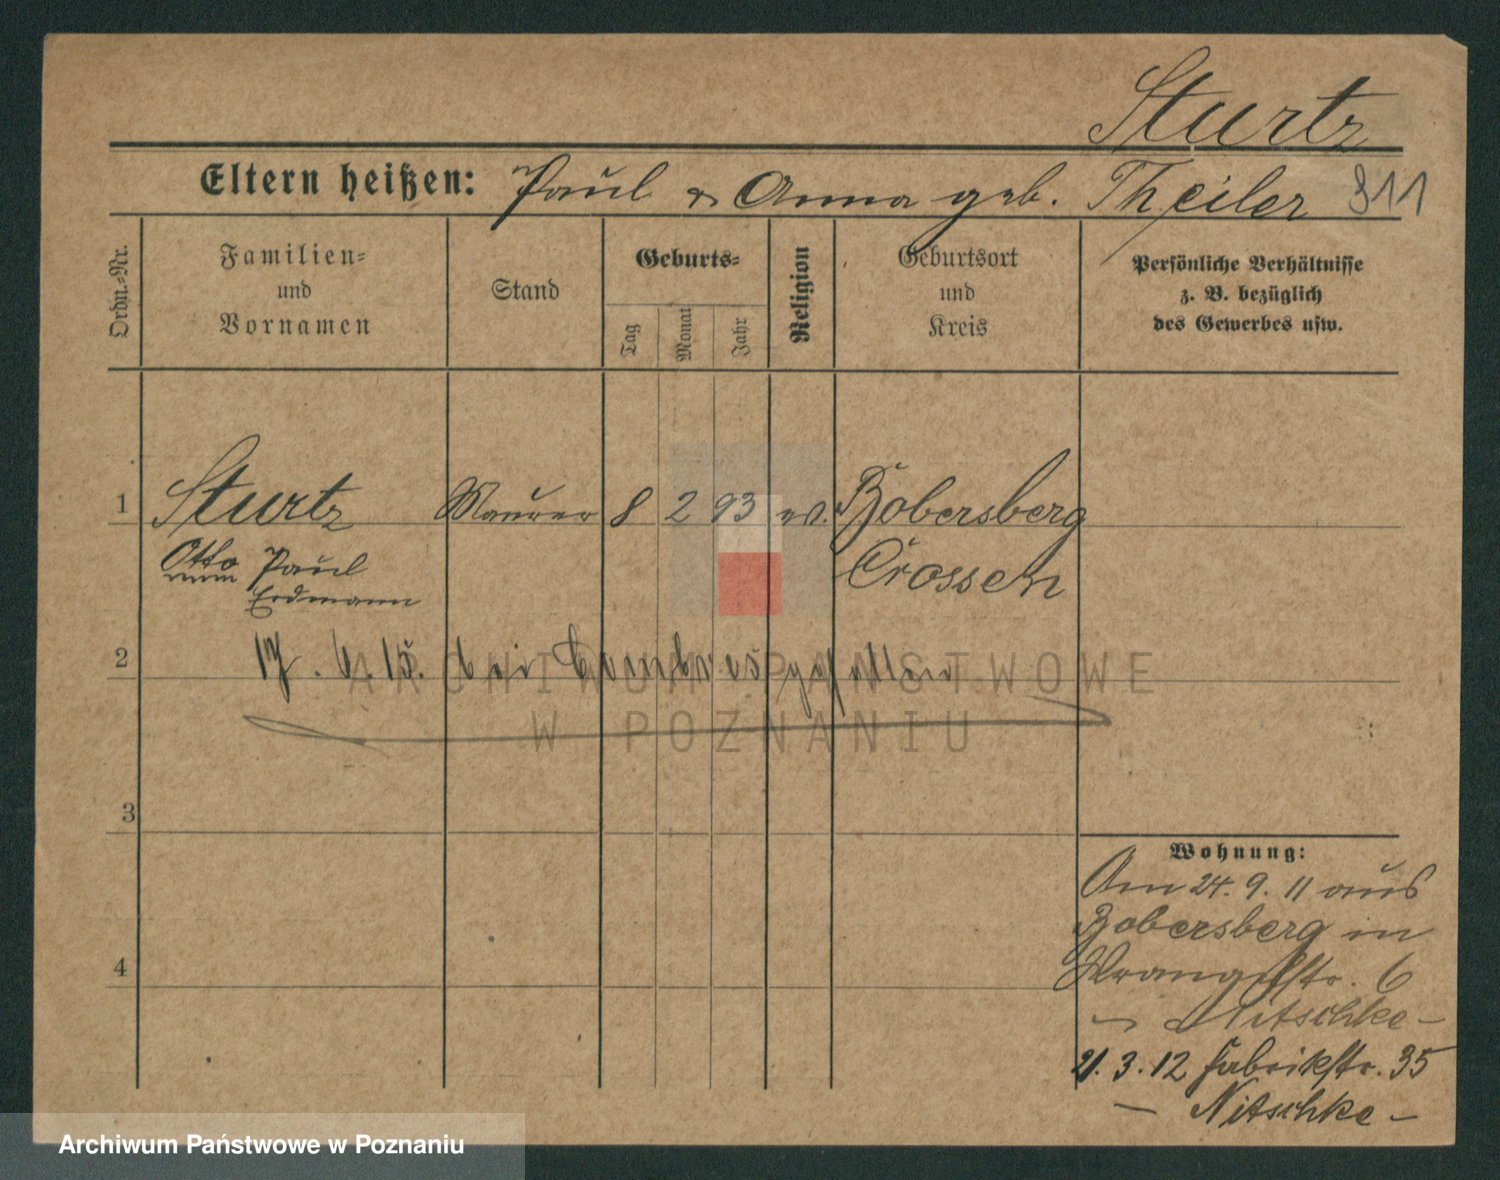 Sturtz
Eltern heißen: Paul & Anna geb. Theiler 311
Ordn.-Nr.
Familien-
und
Vornamen
Stand
Geburts-
Tag
Monat
Jahr
Religion
Geburtsort
und
Kreis
Persönliche Verhältnisse
z. B. bezüglich
des Gewerbes usw.
1 Sturtz Maurer 8 2 93 ev. Bobersberg
Otto Paul Crossen
Erdmann
2 17. 6. 15. bei gefallen
ARCHIWUM PAŃSTWOWE
W POZNANIU
3
Wohnung:
Am 24. 9. 11 aus
Bobersberg in
4 Wrangelstr. 6
— Nitschke —
21. 3. 12 Fabrikstr. 35
— Nitschke —
Archiwum Państwowe w Poznaniu